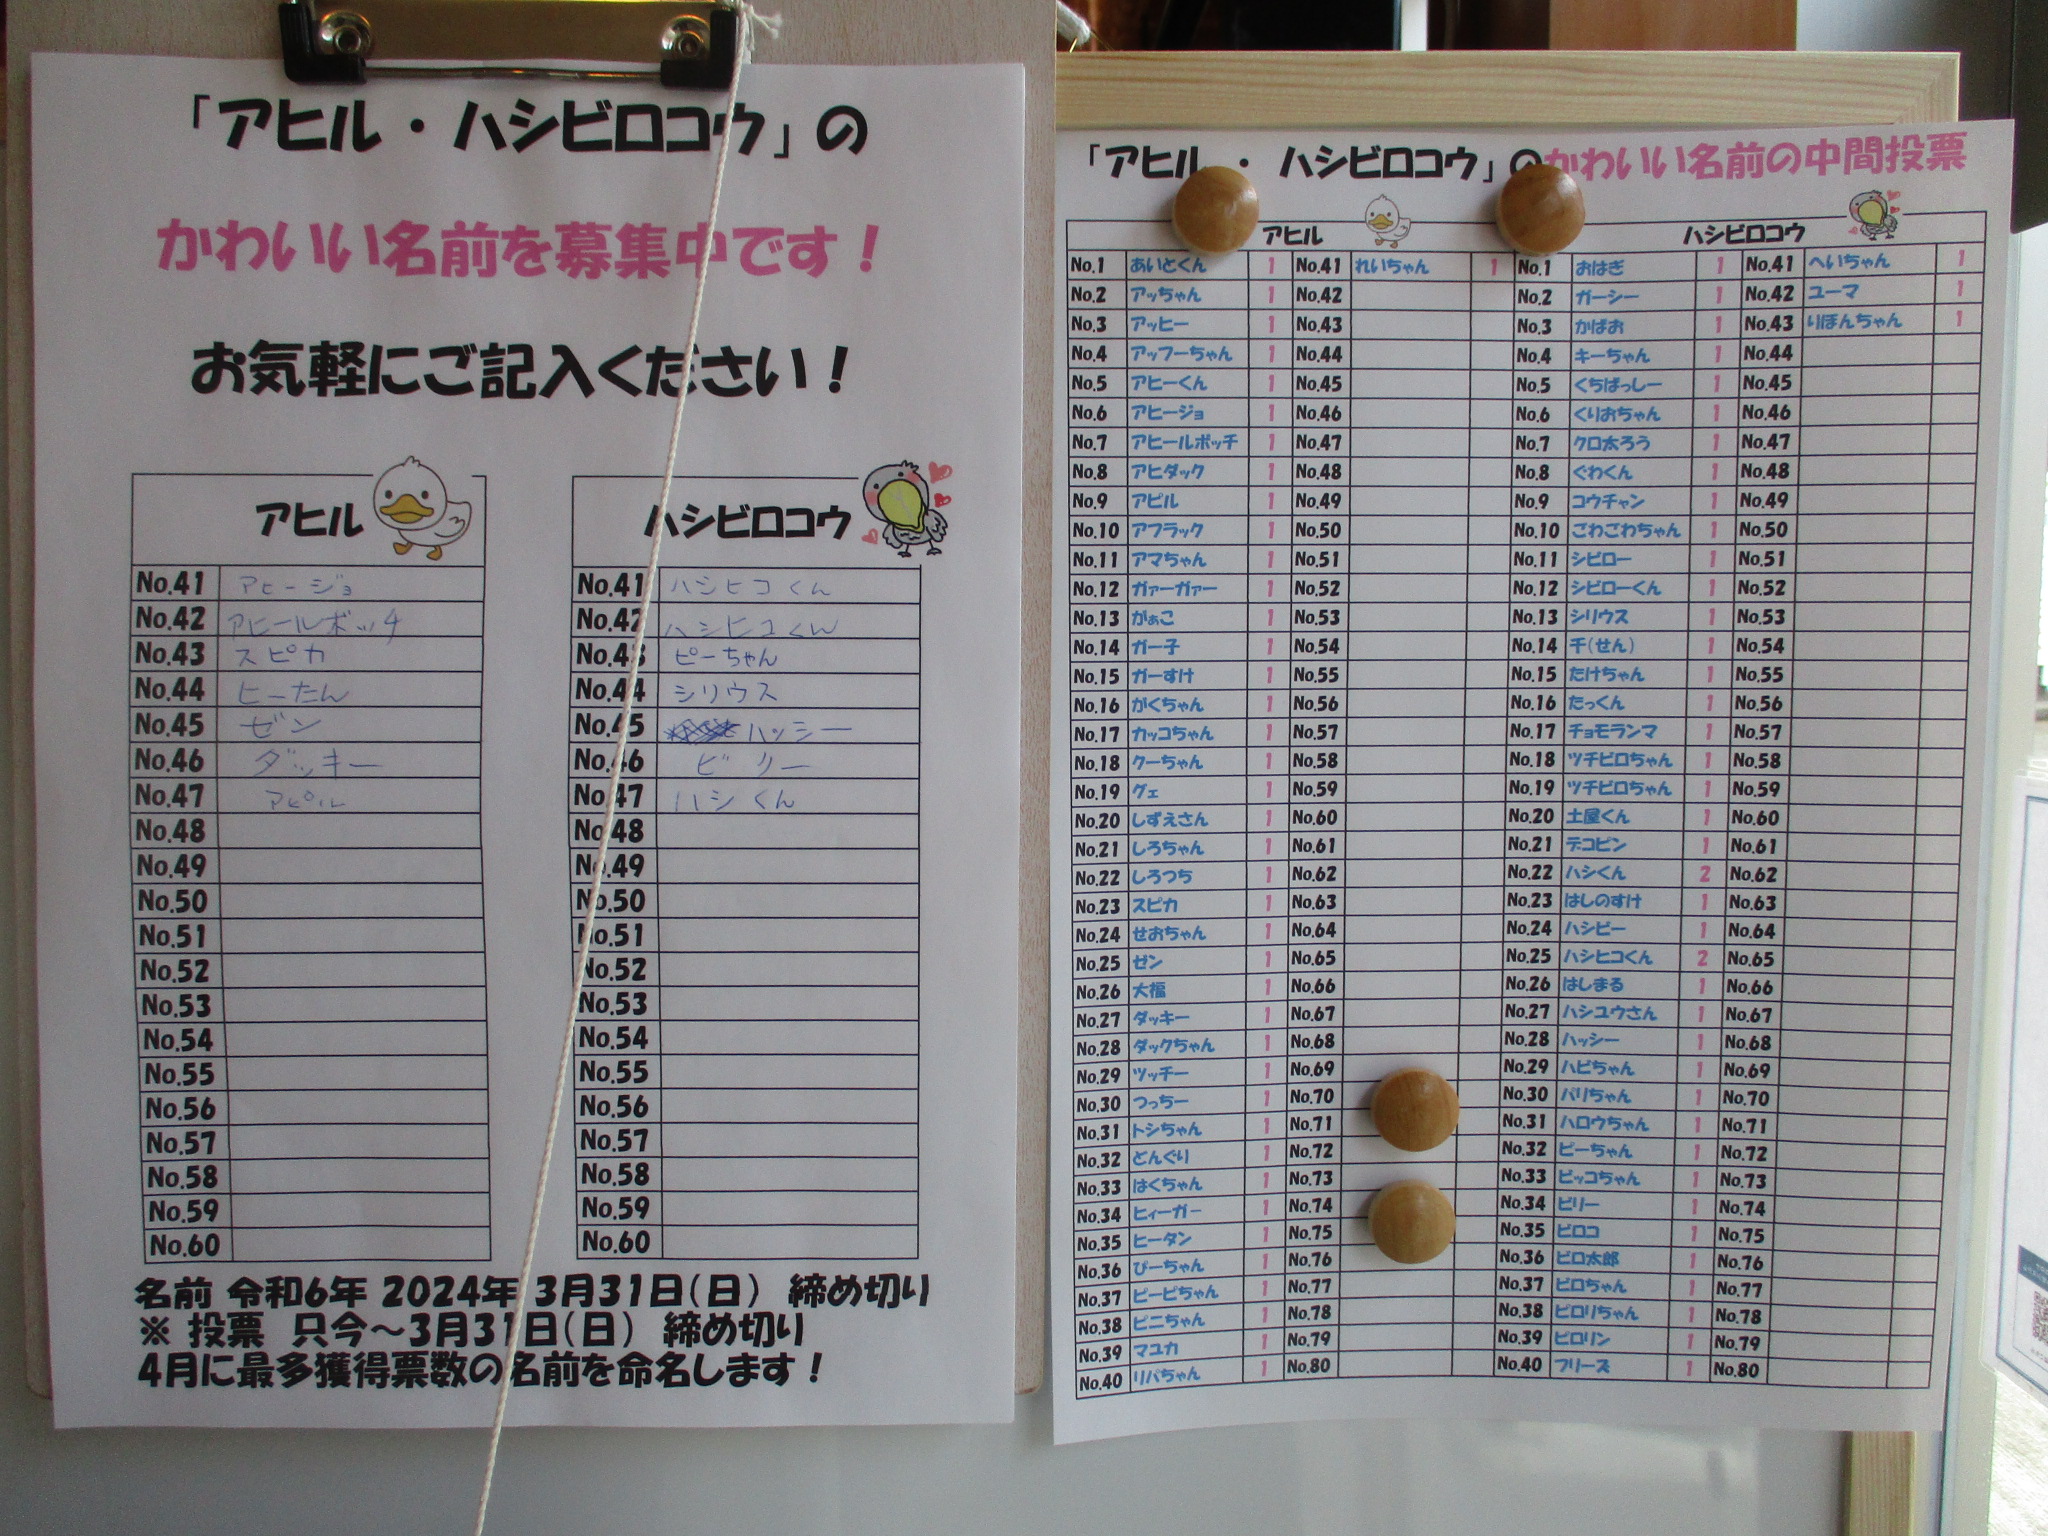 「アヒル・ハシビロコウ」の
かわいい名前を募集中です！
お気軽にご記入ください！
アヒル
No.41 アヒージョ
No.42 アヒールボッチ
No.43 スピカ
No.44 ヒーたん
No.45 ゼン
No.46 ダッキー
No.47 アピル
No.48
No.49
No.50
No.51
No.52
No.53
No.54
No.55
No.56
No.57
No.58
No.59
No.60
ハシビロコウ
No.41 ハシヒコくん
No.42 ハシヒコくん
No.43 ピーちゃん
No.44 シリウス
No.45 ハッシー
No.46 ビリー
No.47 ハシくん
No.48
No.49
No.50
No.51
No.52
No.53
No.54
No.55
No.56
No.57
No.58
No.59
No.60
名前 令和6年 2024年 3月31日(日) 締め切り
※ 投票 只今～3月31日(日) 締め切り
4月に最多獲得票数の名前を命名します！
「アヒル・ハシビロコウ」のかわいい名前の中間投票
アヒル
No.1 あいとくん 1 No.41 れいちゃん 1
No.2 アッちゃん 1 No.42
No.3 アッヒー 1 No.43
No.4 アッフーちゃん 1 No.44
No.5 アヒーくん 1 No.45
No.6 アヒージョ 1 No.46
No.7 アヒールボッチ 1 No.47
No.8 アヒダック 1 No.48
No.9 アピル 1 No.49
No.10 アフラック 1 No.50
No.11 アマちゃん 1 No.51
No.12 ガァーガァー 1 No.52
No.13 がぁこ 1 No.53
No.14 ガー子 1 No.54
No.15 ガーすけ 1 No.55
No.16 がくちゃん 1 No.56
No.17 カッコちゃん 1 No.57
No.18 クーちゃん 1 No.58
No.19 グェ 1 No.59
No.20 しずえさん 1 No.60
No.21 しろちゃん 1 No.61
No.22 しろつち 1 No.62
No.23 スピカ 1 No.63
No.24 せおちゃん 1 No.64
No.25 ゼン 1 No.65
No.26 大福 1 No.66
No.27 ダッキー 1 No.67
No.28 ダックちゃん 1 No.68
No.29 ツッチー 1 No.69
No.30 つっちー 1 No.70
No.31 トシちゃん 1 No.71
No.32 どんぐり 1 No.72
No.33 はくちゃん 1 No.73
No.34 ヒィーガー 1 No.74
No.35 ヒータン 1 No.75
No.36 ぴーちゃん 1 No.76
No.37 ピーピちゃん 1 No.77
No.38 ピニちゃん 1 No.78
No.39 マユカ 1 No.79
No.40 リパちゃん 1 No.80
ハシビロコウ
No.1 おはぎ 1 No.41 へいちゃん 1
No.2 ガーシー 1 No.42 ユーマ 1
No.3 かばお 1 No.43 りぼんちゃん 1
No.4 キーちゃん 1 No.44
No.5 くちばっしー 1 No.45
No.6 くりおちゃん 1 No.46
No.7 クロ太ろう 1 No.47
No.8 ぐわくん 1 No.48
No.9 コウチャン 1 No.49
No.10 ごわごわちゃん 1 No.50
No.11 シビロー 1 No.51
No.12 シビローくん 1 No.52
No.13 シリウス 1 No.53
No.14 千(せん) 1 No.54
No.15 たけちゃん 1 No.55
No.16 たっくん 1 No.56
No.17 チョモランマ 1 No.57
No.18 ツチビロちゃん 1 No.58
No.19 ツチビロちゃん 1 No.59
No.20 土屋くん 1 No.60
No.21 デコピン 1 No.61
No.22 ハシくん 2 No.62
No.23 はしのすけ 1 No.63
No.24 ハシビー 1 No.64
No.25 ハシヒコくん 2 No.65
No.26 はしまる 1 No.66
No.27 ハシユウさん 1 No.67
No.28 ハッシー 1 No.68
No.29 ハビちゃん 1 No.69
No.30 バリちゃん 1 No.70
No.31 ハロウちゃん 1 No.71
No.32 ピーちゃん 1 No.72
No.33 ピッコちゃん 1 No.73
No.34 ビリー 1 No.74
No.35 ビロコ 1 No.75
No.36 ビロ太郎 1 No.76
No.37 ビロちゃん 1 No.77
No.38 ビロリちゃん 1 No.78
No.39 ビロリン 1 No.79
No.40 フリーズ 1 No.80